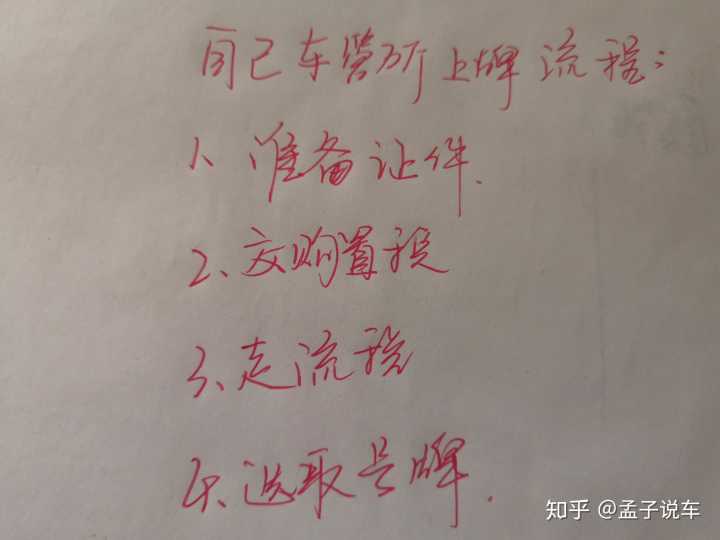 自己车管所上牌流程：
1、准备证件.
2、交购置税
3、走流程
4、选取号牌.
知乎 @孟子说车